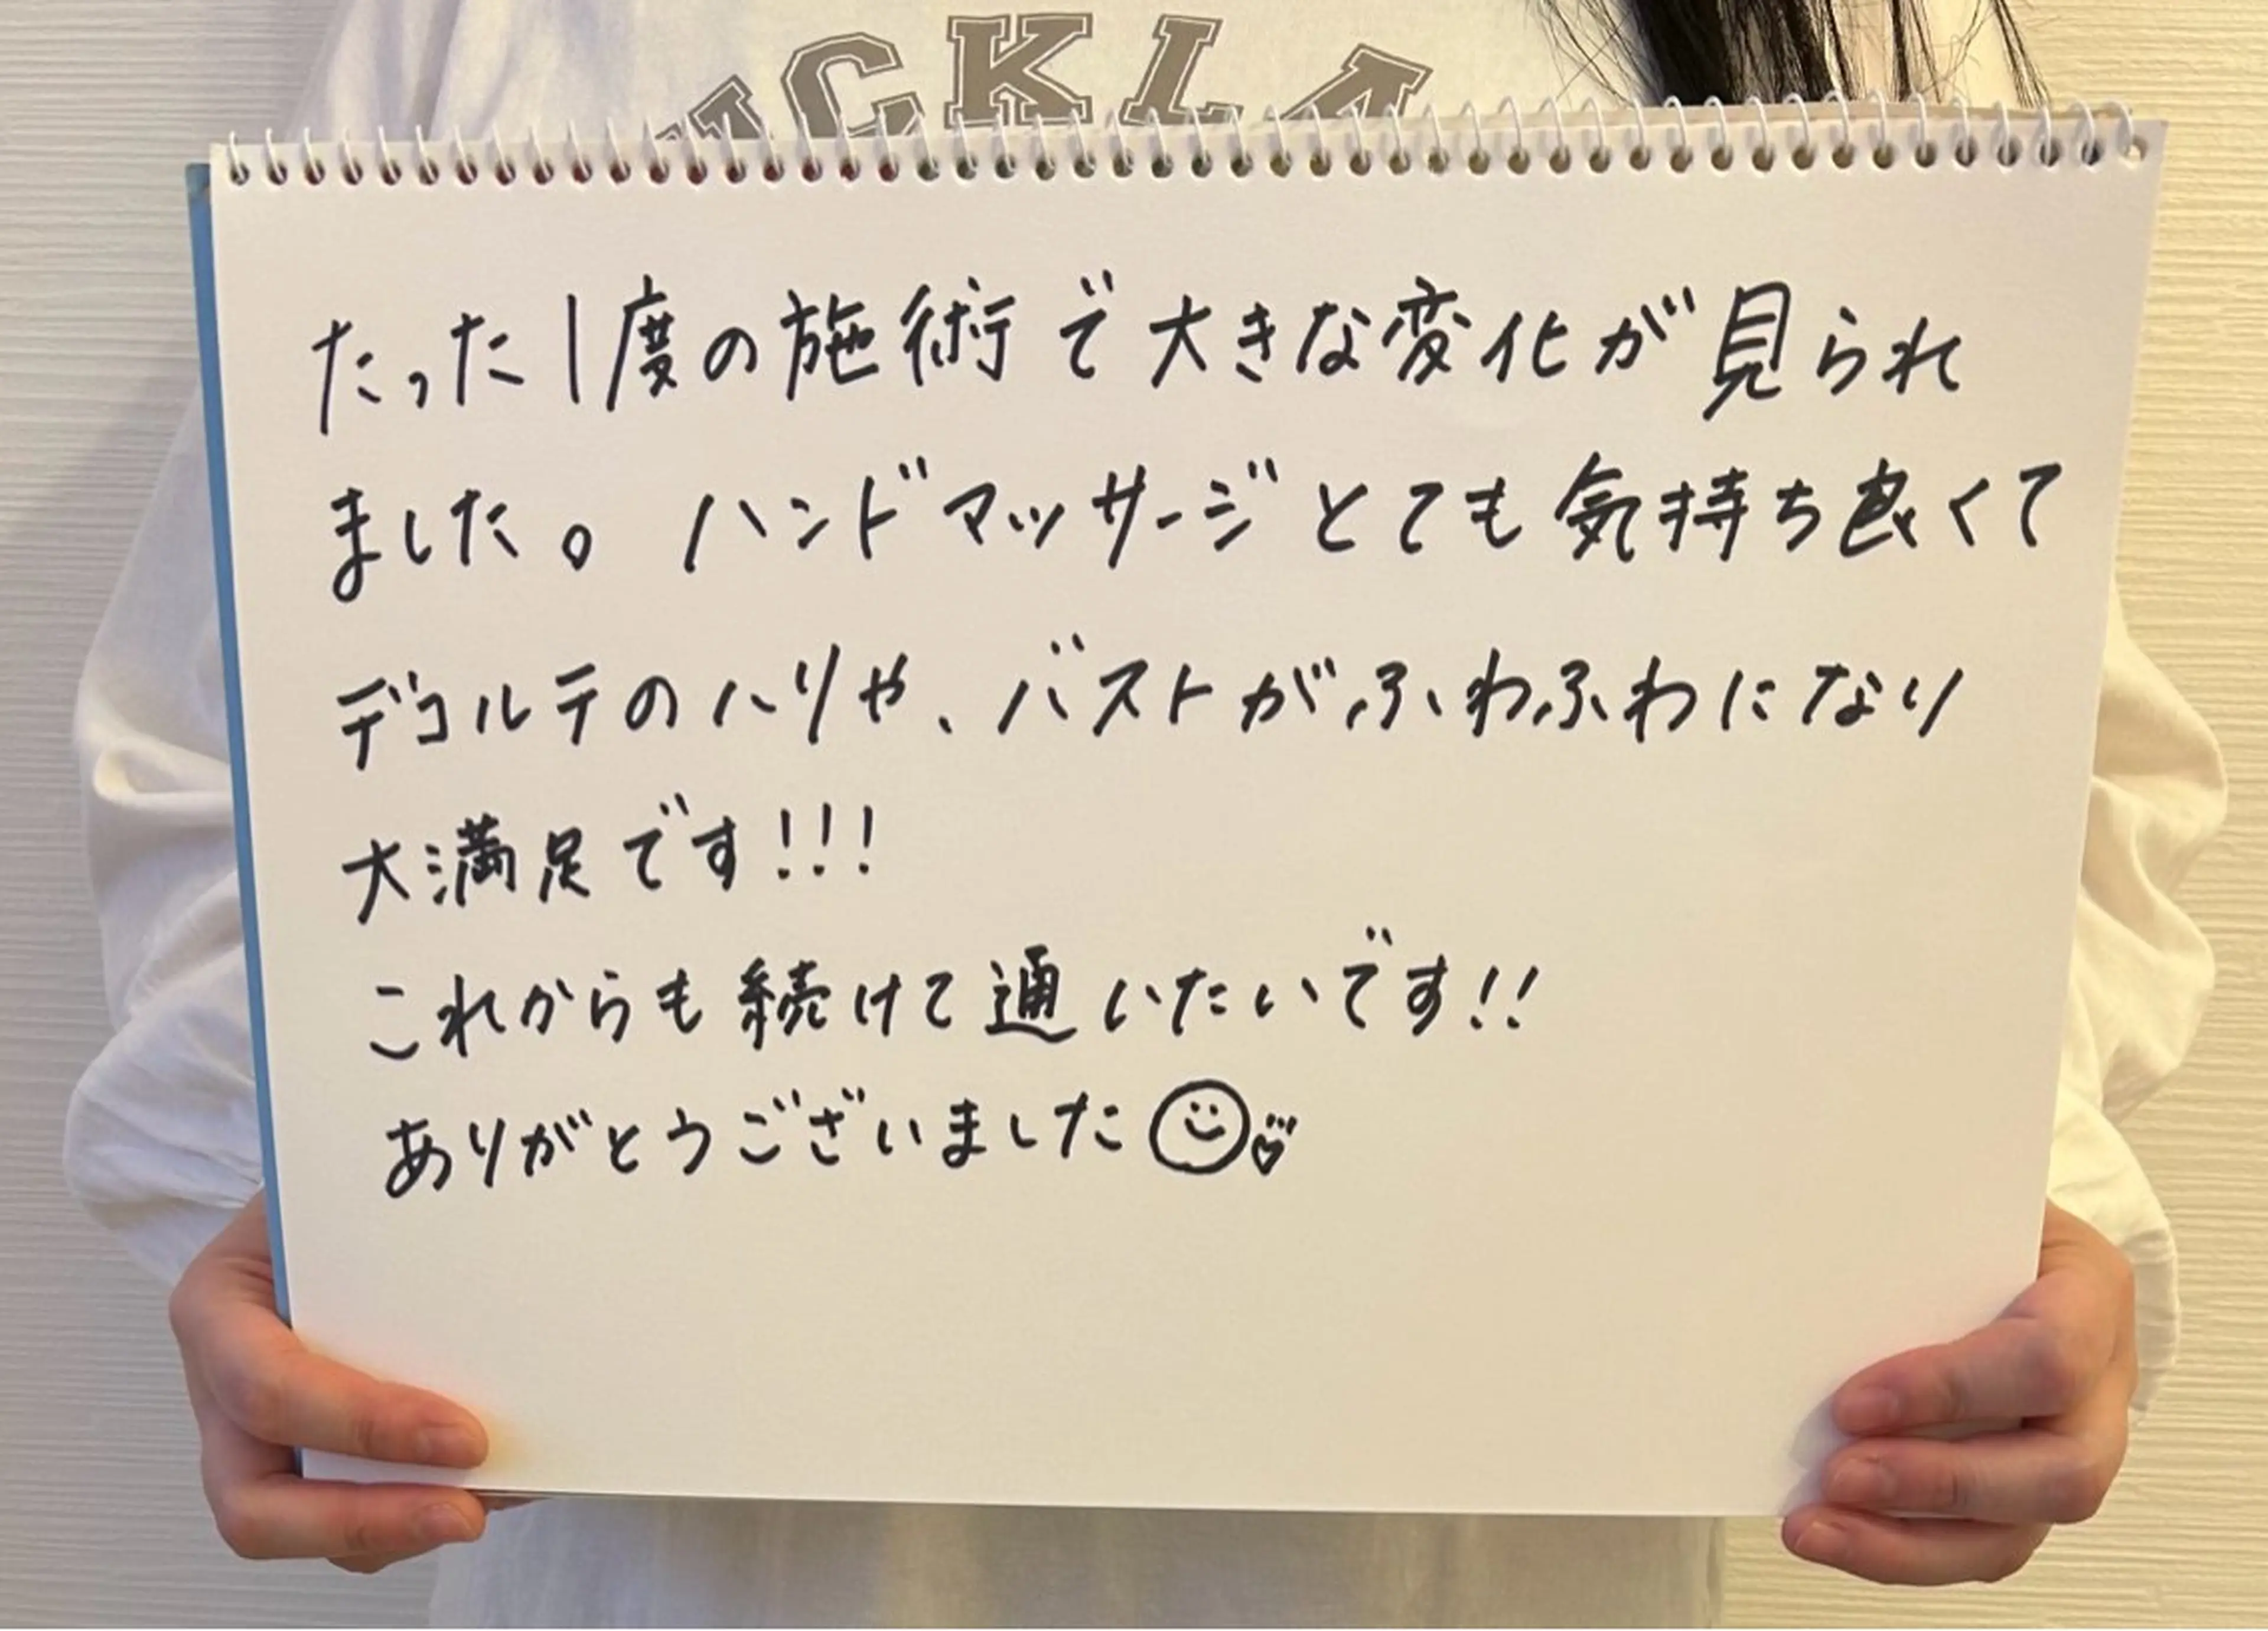 CKLA
たった1度の施術で大きな変化が見られ
ました。ハンドマッサージとても気持ち良くて
デコルテのハリや、バストがふわふわになり
大満足です!!!
これからも続けて通いたいです!!
ありがとうございました